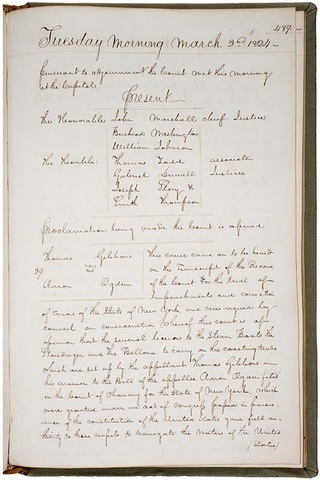 489.
Tuesday Morning March 2d 1824
Pursuant to adjournment the Court met this morning
at the Capitol.
Present
The Honorable John Marshall chief Justice
Bushrod Washington
William Johnson
The Honble: Thomas Todd associate
Gabriel Duvall Justices
Joseph Story &
Smith Thompson
Proclamation being made the Court is opened
Thomas Gibbons This cause came on to be heard
on the Transcript of the Record
Aaron Ogden of the Court for the trial of
Impeachments and correction
of Errors of the State of New York and was argued by
counsel on consideration whereof this Court is of
opinion that the several licenses to the Steam Boats the
Stoudinger and the Bellona to carry on the coasting trade
which are set up by the appellant Thomas Gibbons in
his answer to the Bill of the appellee Aaron Ogden filed
in the Court of Chancery for the State of New York, which
were granted under an act of Congress passed in pursu-
ance of the constitution of the United States gave full au-
thority to those vessels to navigate the waters of the United
(States)